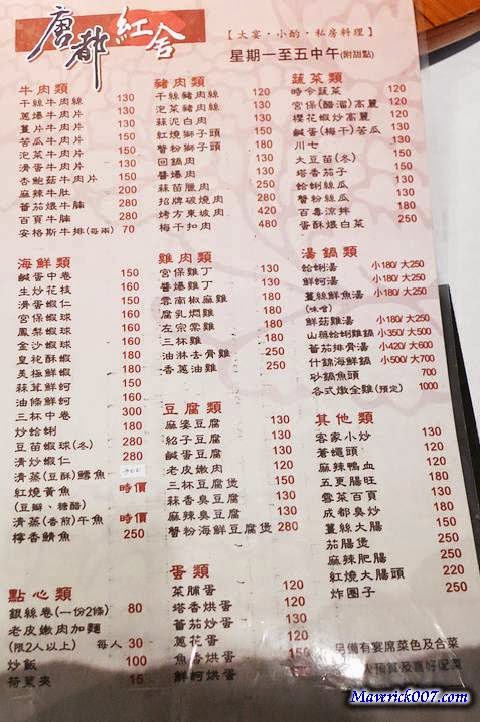 唐都紅舍
【大宴・小酌・私房料理】
星期一至五中午(附甜點)
牛肉類
干絲牛肉絲 130
蔥爆牛肉片 130
薑片牛肉片 130
苦瓜牛肉片 150
泡菜牛肉片 150
滑蛋牛肉片 130
杏鮑菇牛肉片 150
麻辣牛肚 200
蕃茄煨牛腩 280
百頁牛腩 280
安格斯牛排(每兩) 70
海鮮類
鹹蛋中卷 150
生炒花枝 160
滑蛋蝦仁 150
宮保蝦球 160
鳳梨蝦球 160
金沙蝦球 180
皇花酥蝦 180
美極鮮蝦 180
蒜茸鮮蚵 160
油條鮮蚵 160
三杯中卷 300
炒蛤蜊 180
豆苗蝦球(冬) 280
清炒蝦仁 280
清蒸(豆酥)鱈魚
紅燒黃魚 時價
(豆瓣、糖醋)
清蒸(香煎)午魚 時價
檸香鯖魚 250
點心類
銀絲卷(一份2條) 80
老皮嫩肉加麵
(限2人以上) 每人 30
炒飯 100
荷葉夾 15
豬肉類
干絲豬肉絲 120
泡菜豬肉絲 120
蒜泥白肉 130
紅燒獅子頭 150
蟹粉獅子頭 150
回鍋肉 130
醬爆肉 130
蒜苗臘肉 250
招牌碳燒肉 250
烤方東坡肉 420
梅干扣肉 480
雞肉類
宮保雞丁 130
醬爆雞丁 130
雲南椒麻雞 130
腐乳燜雞 130
左宗棠雞 130
三杯雞 130
油淋去骨雞 250
香蔥油雞 250
豆腐類
麻婆豆腐 130
紹子豆腐 130
鹹蛋豆腐 130
老皮嫩肉 120
三杯臭豆腐 130
蒜香臭豆腐 130
麻辣臭豆腐 130
蟹粉海鮮豆腐煲 280
蛋類
菜脯蛋 120
塔香烘蛋 120
蕃茄炒蛋 120
蔥花蛋 120
魚香烘蛋 130
鮮蚵烘蛋 150
蔬菜類
時令蔬菜 120
宮保(醋溜)高麗 120
櫻花蝦炒高麗 120
鹹蛋(梅干)苦瓜 130
川七 130
大豆苗(冬) 150
塔香茄子 130
蛤蜊絲瓜 150
蟹粉絲瓜 150
百粵涼拌 150
蛋酥煨白菜 150
湯鍋類
蛤蜊湯 小180/大250
鮮蚵湯 小180/大250
薑絲鮮魚湯 小180/大250
(味噌)
鮮菇雞湯 小180/大250
山藥蛤蜊雞鍋 小350/大500
蕃茄排骨湯 小420/大600
什錦海鮮鍋 小500/大700
砂鍋魚頭 700
各式燉全雞(預定) 1000
其他類
客家小炒 130
蒼蠅頭 130
麻辣鴨血 130
五更腸旺 180
雪菜百頁 130
成都臭炒 130
薑絲大腸 150
茄腸煲 150
麻辣肥腸 150
紅燒大腸頭 220
炸圈子 250
另備有宴席菜色及合菜
人預算及喜好配菜
Mawrick007.com